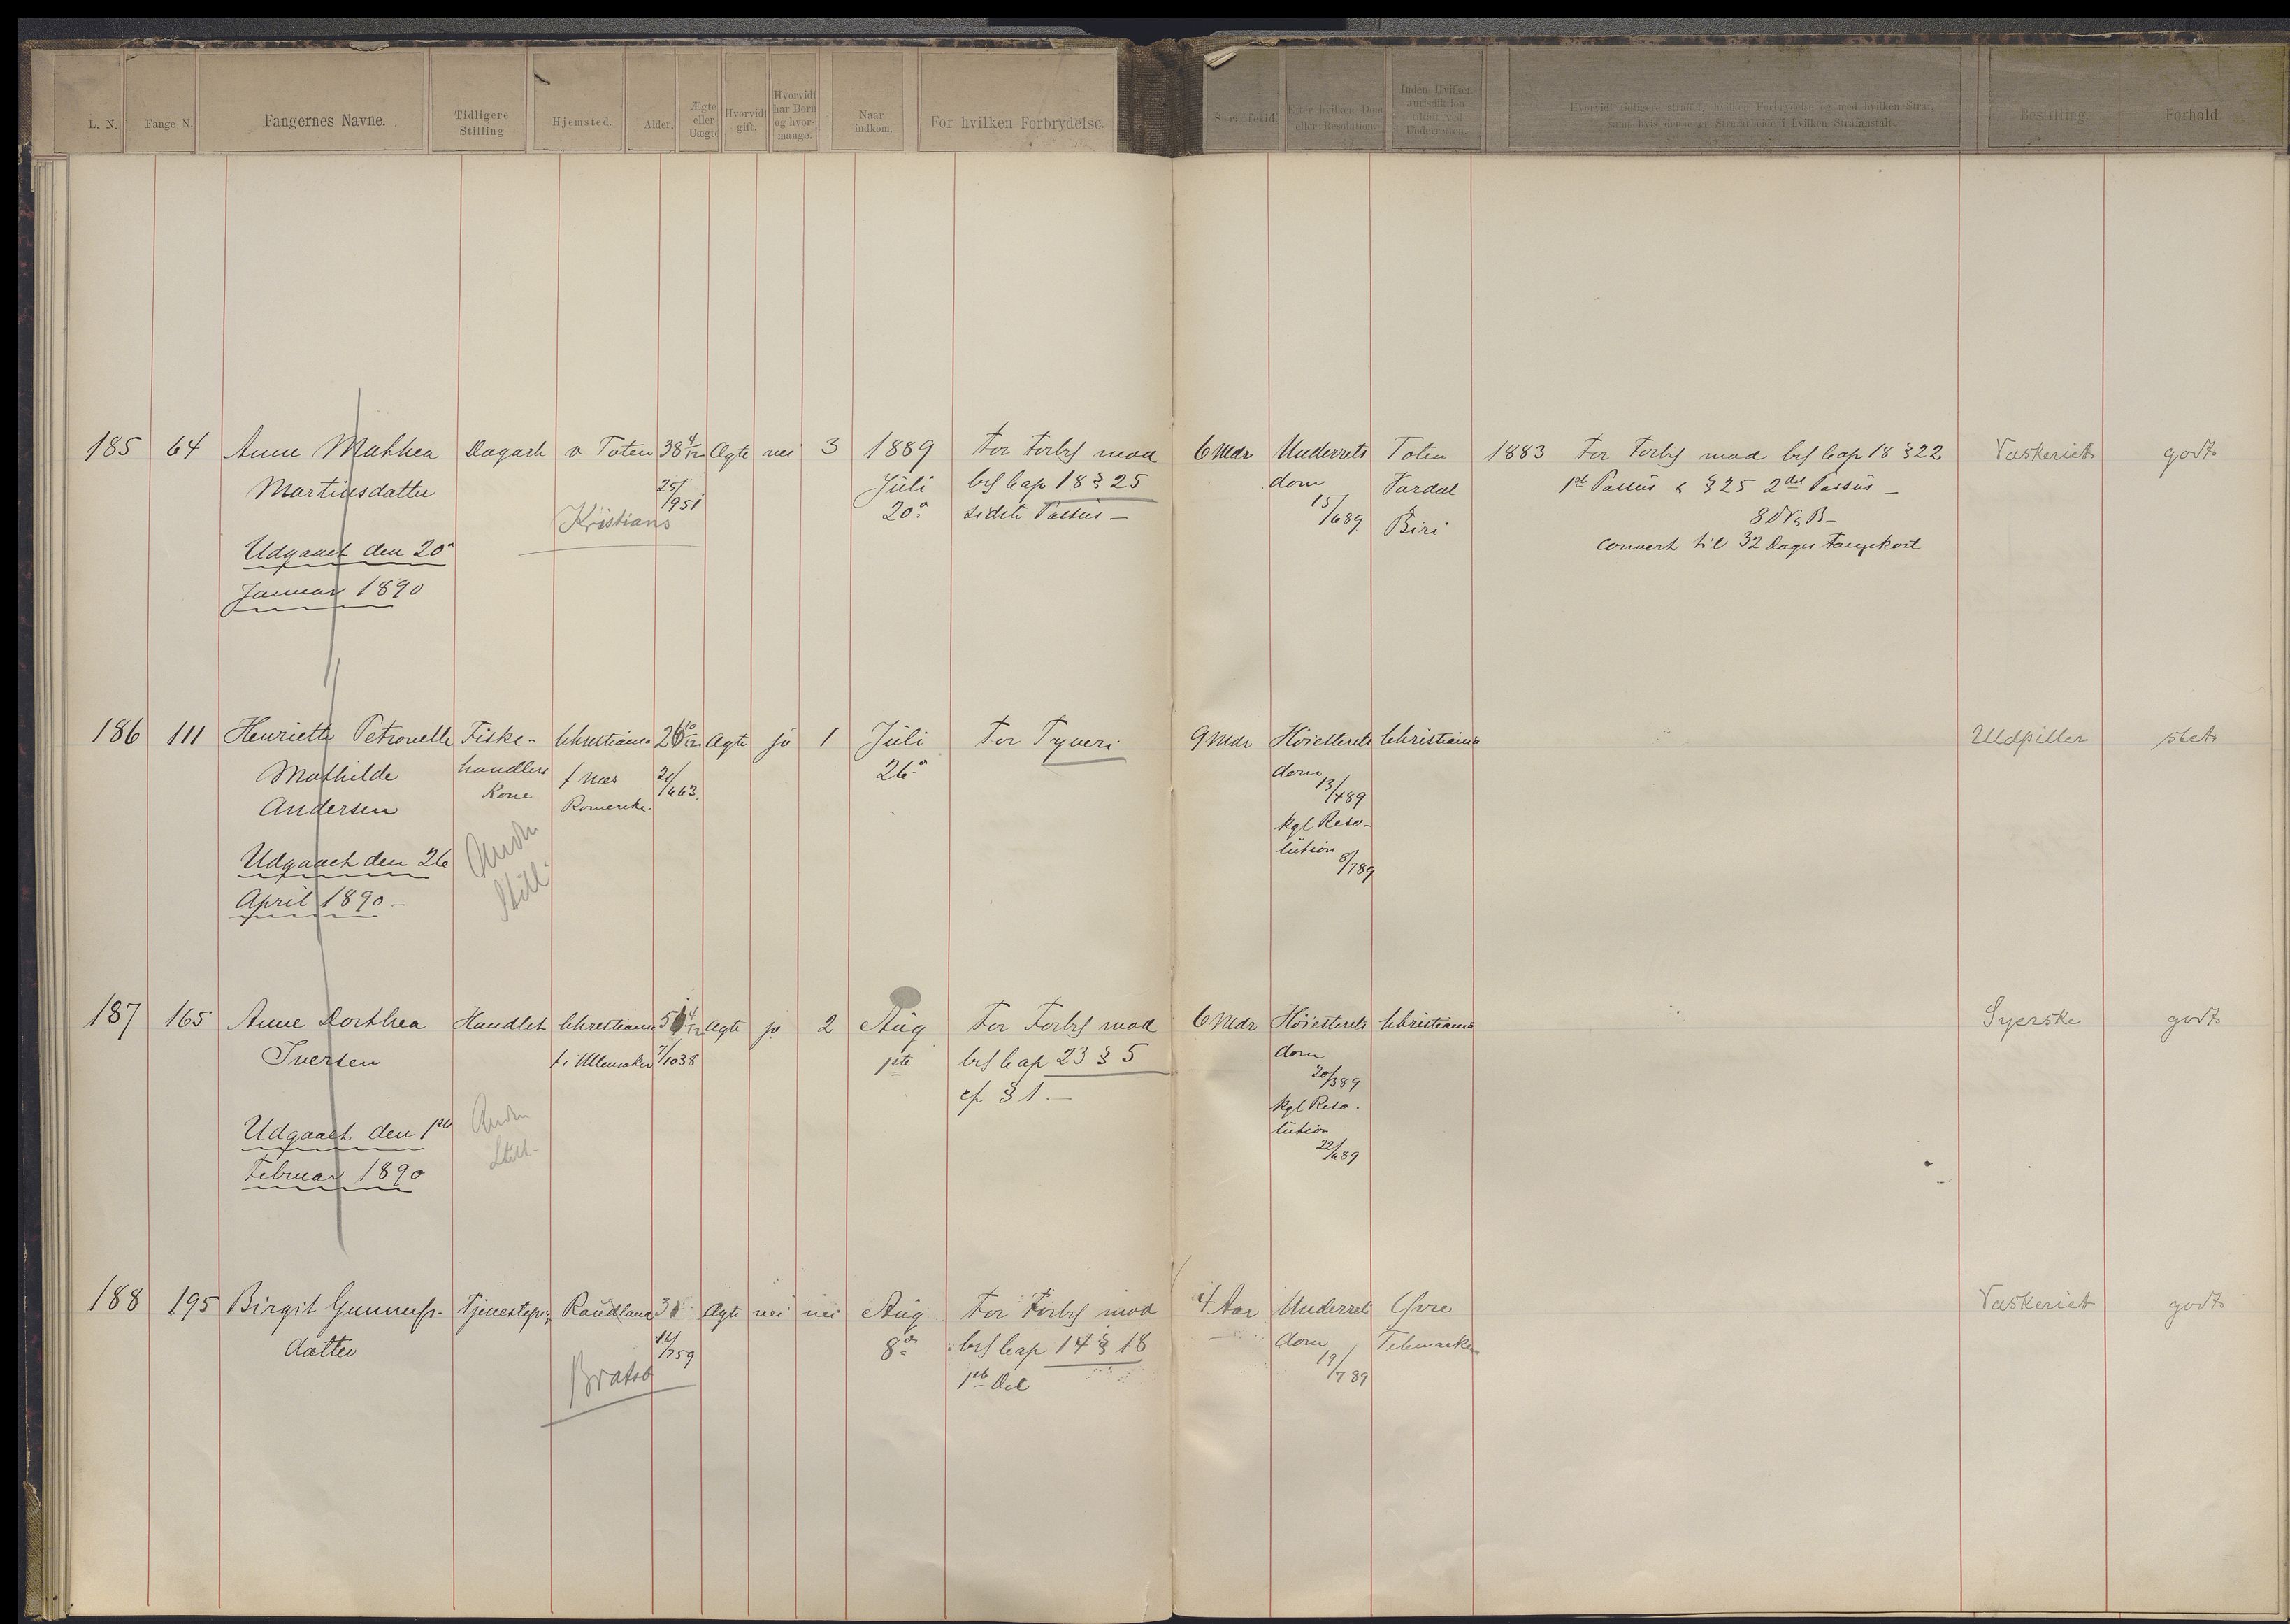 L. N.
Fange N.
Fangernes Navne.
Tidligere
Stilling
Hjemsted.
Alder.
Ægte
eller
Uægte
Hvorvidt
gift.
Hvorvidt
har Børn
og hvor-
mange.
Naar
indkom.
For hvilken Forbrydelse.
Straffetid.
Efter hvilken Dom
eller Resolution.
Inden Hvilken
Jurisdiktion
tiltalt ved
Underretten.
Hvorvidt tidligere straffet, hvilken Forbrydelse og med hvilken Straf,
samt hvis denne er Strafarbeide i hvilken Strafanstalt.
Bestilling
Forhold
185 64 Anne Mathea Dagarb v Toten 38 4/12 Ægte nei 3 1889 For Forbr mod 6 Mdr Underrets Toten 1883 For Forbr mod brf Cap 18 § 22 Vaskeriet godt
Martinsdatter 25/951 Juli brf Cap 18 § 25 dom Vardal 1ste Passus & § 25 2det Passus –
Kristians 20de sidste Passus – 15/689 & Biri 8 D V & B –
Udgaaet den 20de convert til 32 Dages Fangekost
Januar 1890
186 111 Henriette Petronelle Fiske- Christiania 26 10/12 Ægte ja 1 Juli For Tyveri 9 Mdr Høiesterets Christiania Udpiller slet
Mathilde handlers f Næs 26de dom
Andersen Kone Romerike. 13/489
kgl Reso-
Udgaaet den 26 Andr lution
April 1890 – Still 8/789
187 165 Anne Dorthea Handlet Christiania 4/12 Ægte ja 2 Aug For Forbr mod 6 Mdr Høiesterets Christiania Syerske godt
Iversen f i Ullensaker 7/1038 1ste brf Cap 23 § 5 dom
cf § 1. – 20/389
kgl Reso-
Udgaaet den 1ste Andr lution
Februar 1890 Still- 22/689
188 195 Birgit Gunnulfs- Tjenestep Raudland Ægte nei nei Aug For Forbr mod 4 Aar Underrets Øvre Vaskeriet godt
datter 16/759 8de brf Cap 14 § 18 dom Telemarken
Bratsb 1ste Del 19/789